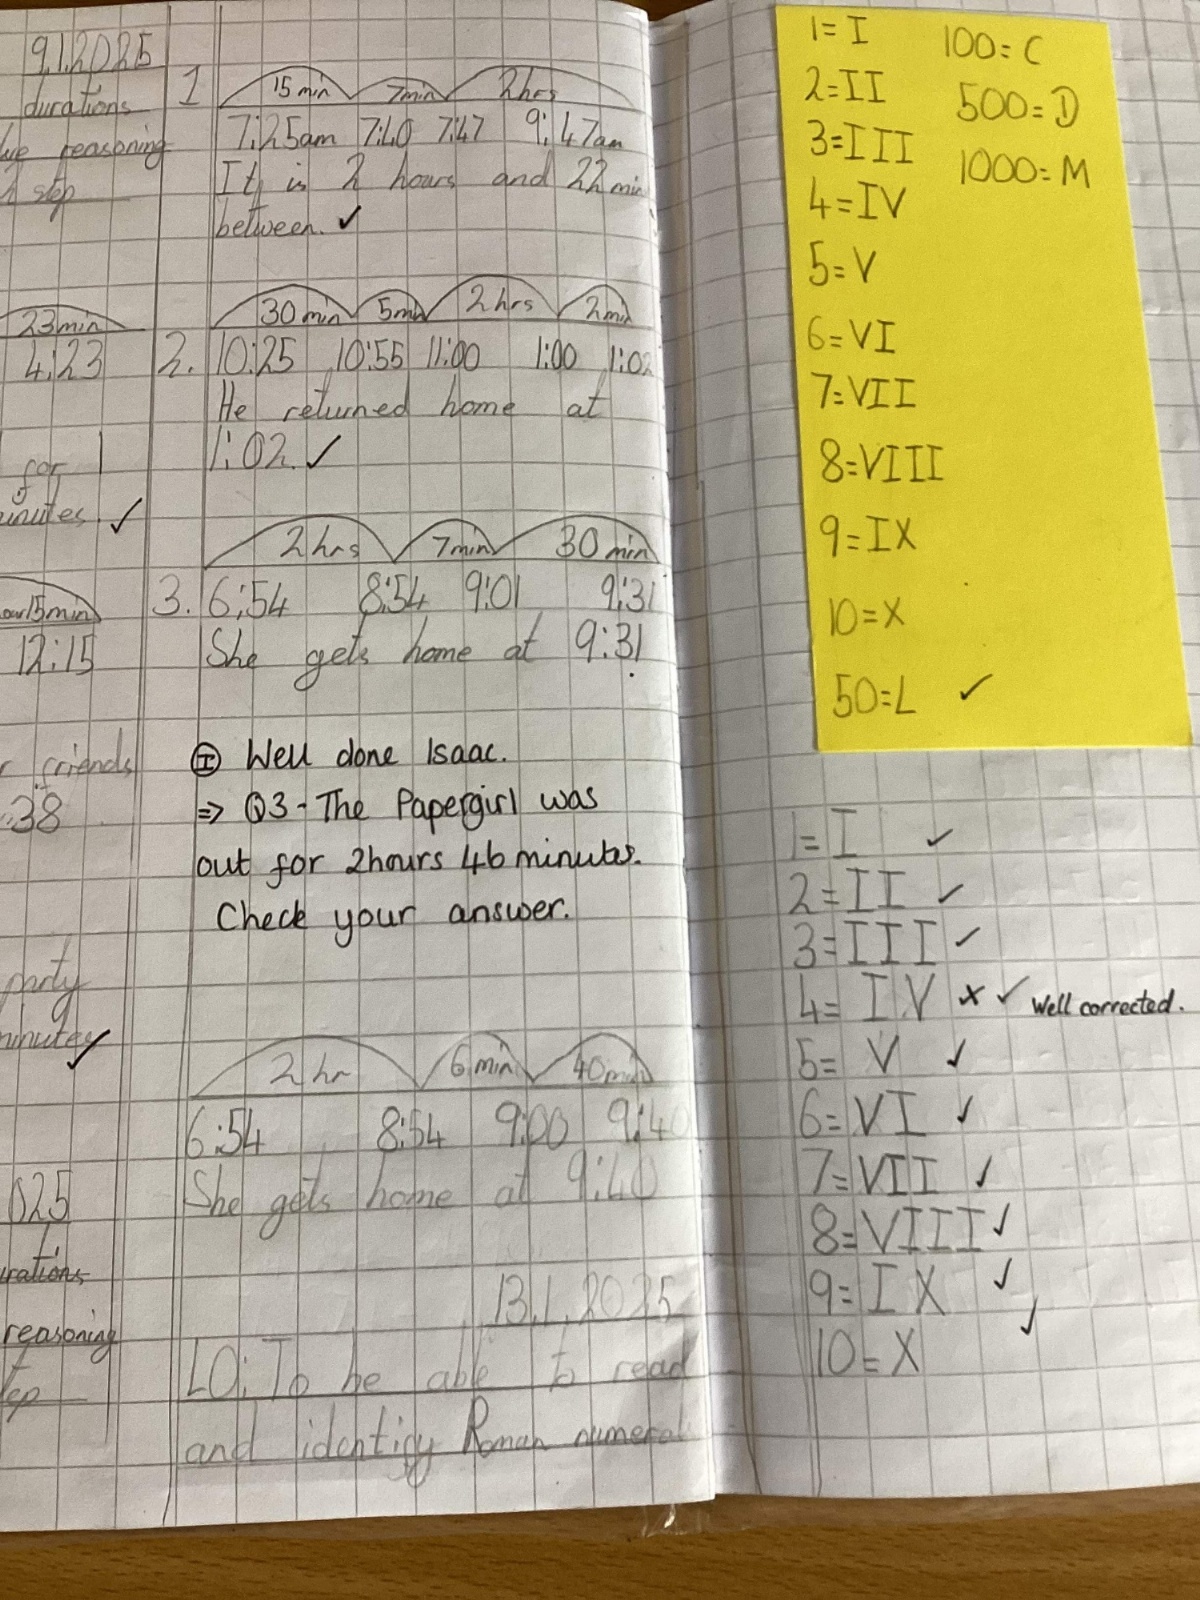 9.1.2025
durations
reasoning
step
23min
4:23
for
minutes. ✓
15min
12:15
friends
38
party
minutes ✓
025
reasoning
1 15 min 7min 2hrs
7:25am 7:40 7:47 9:47am
It is 2 hours and 22 min
between. ✓
30 min 5min 2hrs 2min
2. 10:25 10:55 11:00 1:00 1:02
He returned home at
1:02. ✓
2hrs 7min 30 min
3. 6:54 8:54 9:01 9:31
She gets home at 9:31
I Well done Isaac.
⇒ Q3 - The Papergirl was
out for 2hours 46 minutes.
Check your answer.
2hr 6 min 40min
6:54 8:54 9:00 9:40
She gets home at 9:40
13.1.2025
LO: To be able to read
and identify Roman numeral
1=I
2=II
3=III
4=IV
5=V
6=VI
7=VII
8=VIII
9=IX
10=X
50=L ✓
100=C
500=D
1000=M
1=I ✓
2=II ✓
3=III ✓
4=IV x ✓ Well corrected.
5=V ✓
6=VI ✓
7=VII ✓
8=VIII ✓
9=IX ✓
10=X ✓